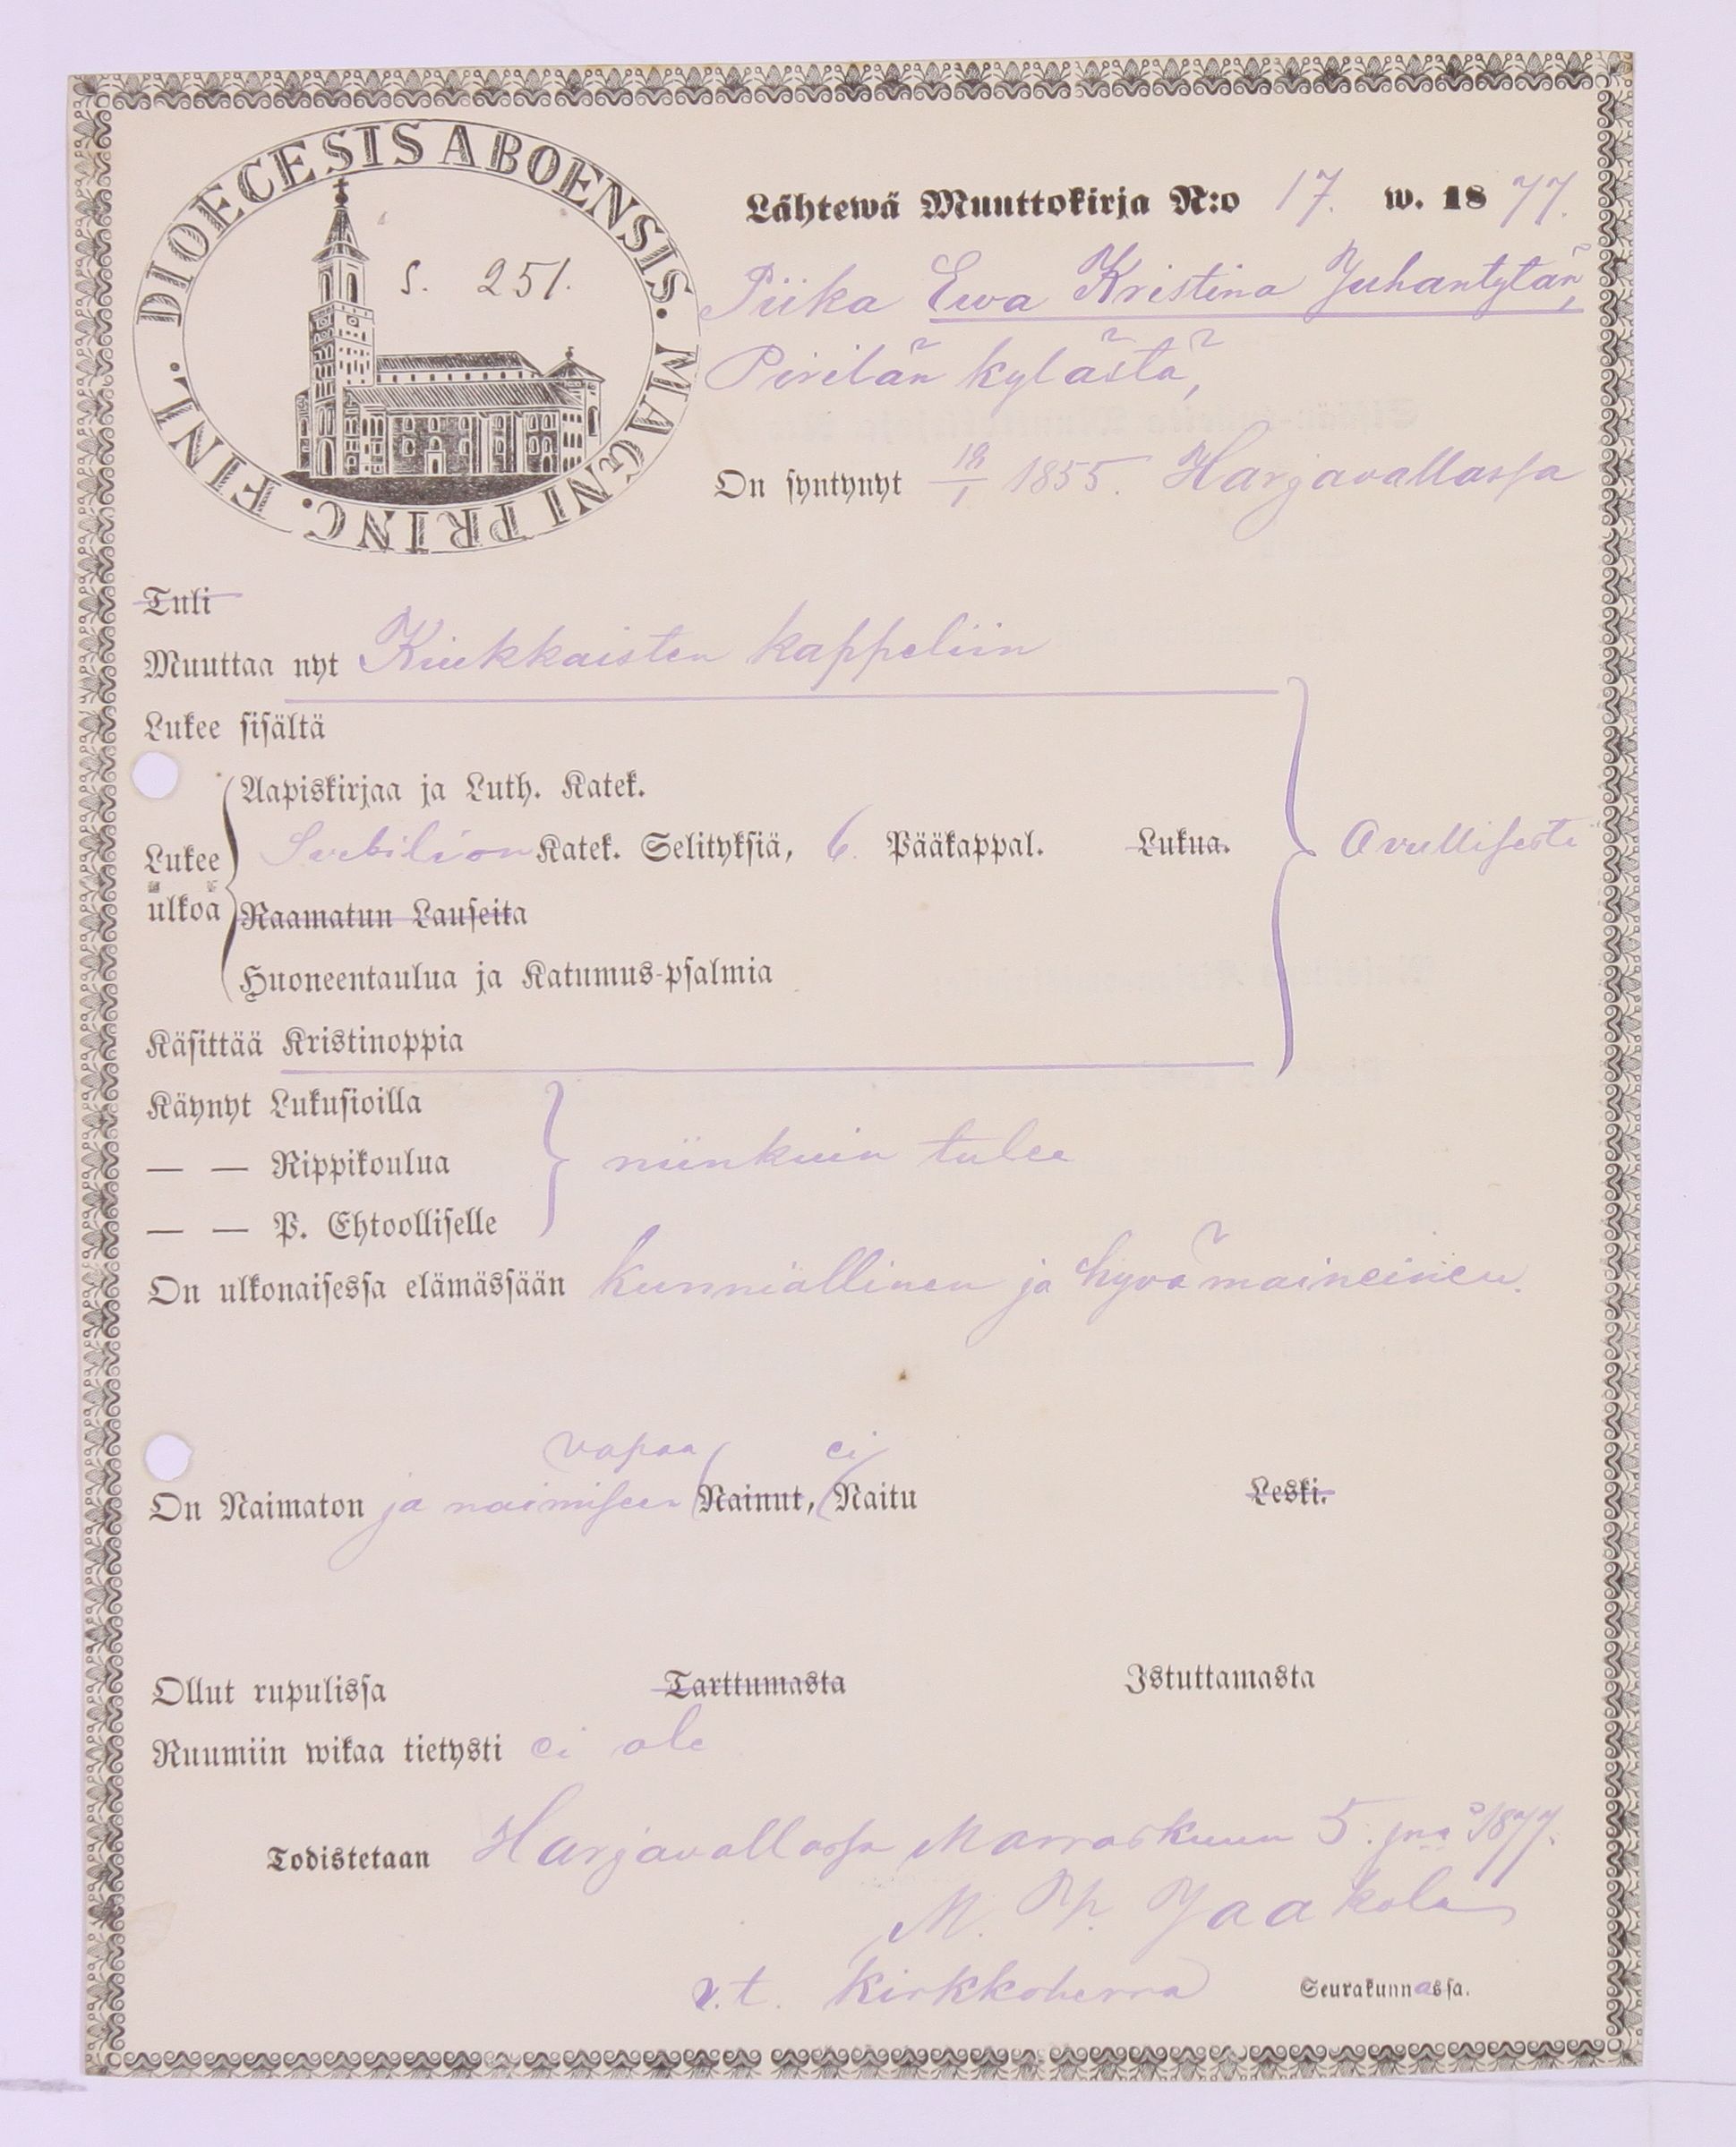 DIOECESIS ABOENSIS. MAGNI PRINC. FINL.
S. 251.
Lähtewä Muuttokirja N:o 17. w. 1877.
Piika Ewa Kristina Juhantytär,
Pirilän kylästä,
On syntynyt 18/1 1855. Harjavallassa
Tuli
Muuttaa nyt Kiukkaisten kappeliin
Lukee sisältä
Aapiskirjaa ja Luth. Katek.
Lukee ulkoa Svebiliön Katek. Selityksiä, 6. Pääkappal. Lukua. Avullisesti
Raamatun Lauseita
Huoneentaulua ja Katumus-psalmia
Käsittää Kristinoppia
Käynyt Lukusioilla
— — Rippikoulua niinkuin tulee
— — P. Ehtoolliselle
On ulkonaisessa elämässään kunniallinen ja hyvämaineinen.
vapaa ei
On Naimaton ja naimiseen Nainut, Naitu Leski.
Ollut rupulissa Tarttumasta Istuttamasta
Ruumiin wikaa tietysti ei ole
Todistetaan Harjavallassa Marraskuun 5. pnä 1877.
Jaakola
v.t. Kirkkoherra Seurakunnassa.